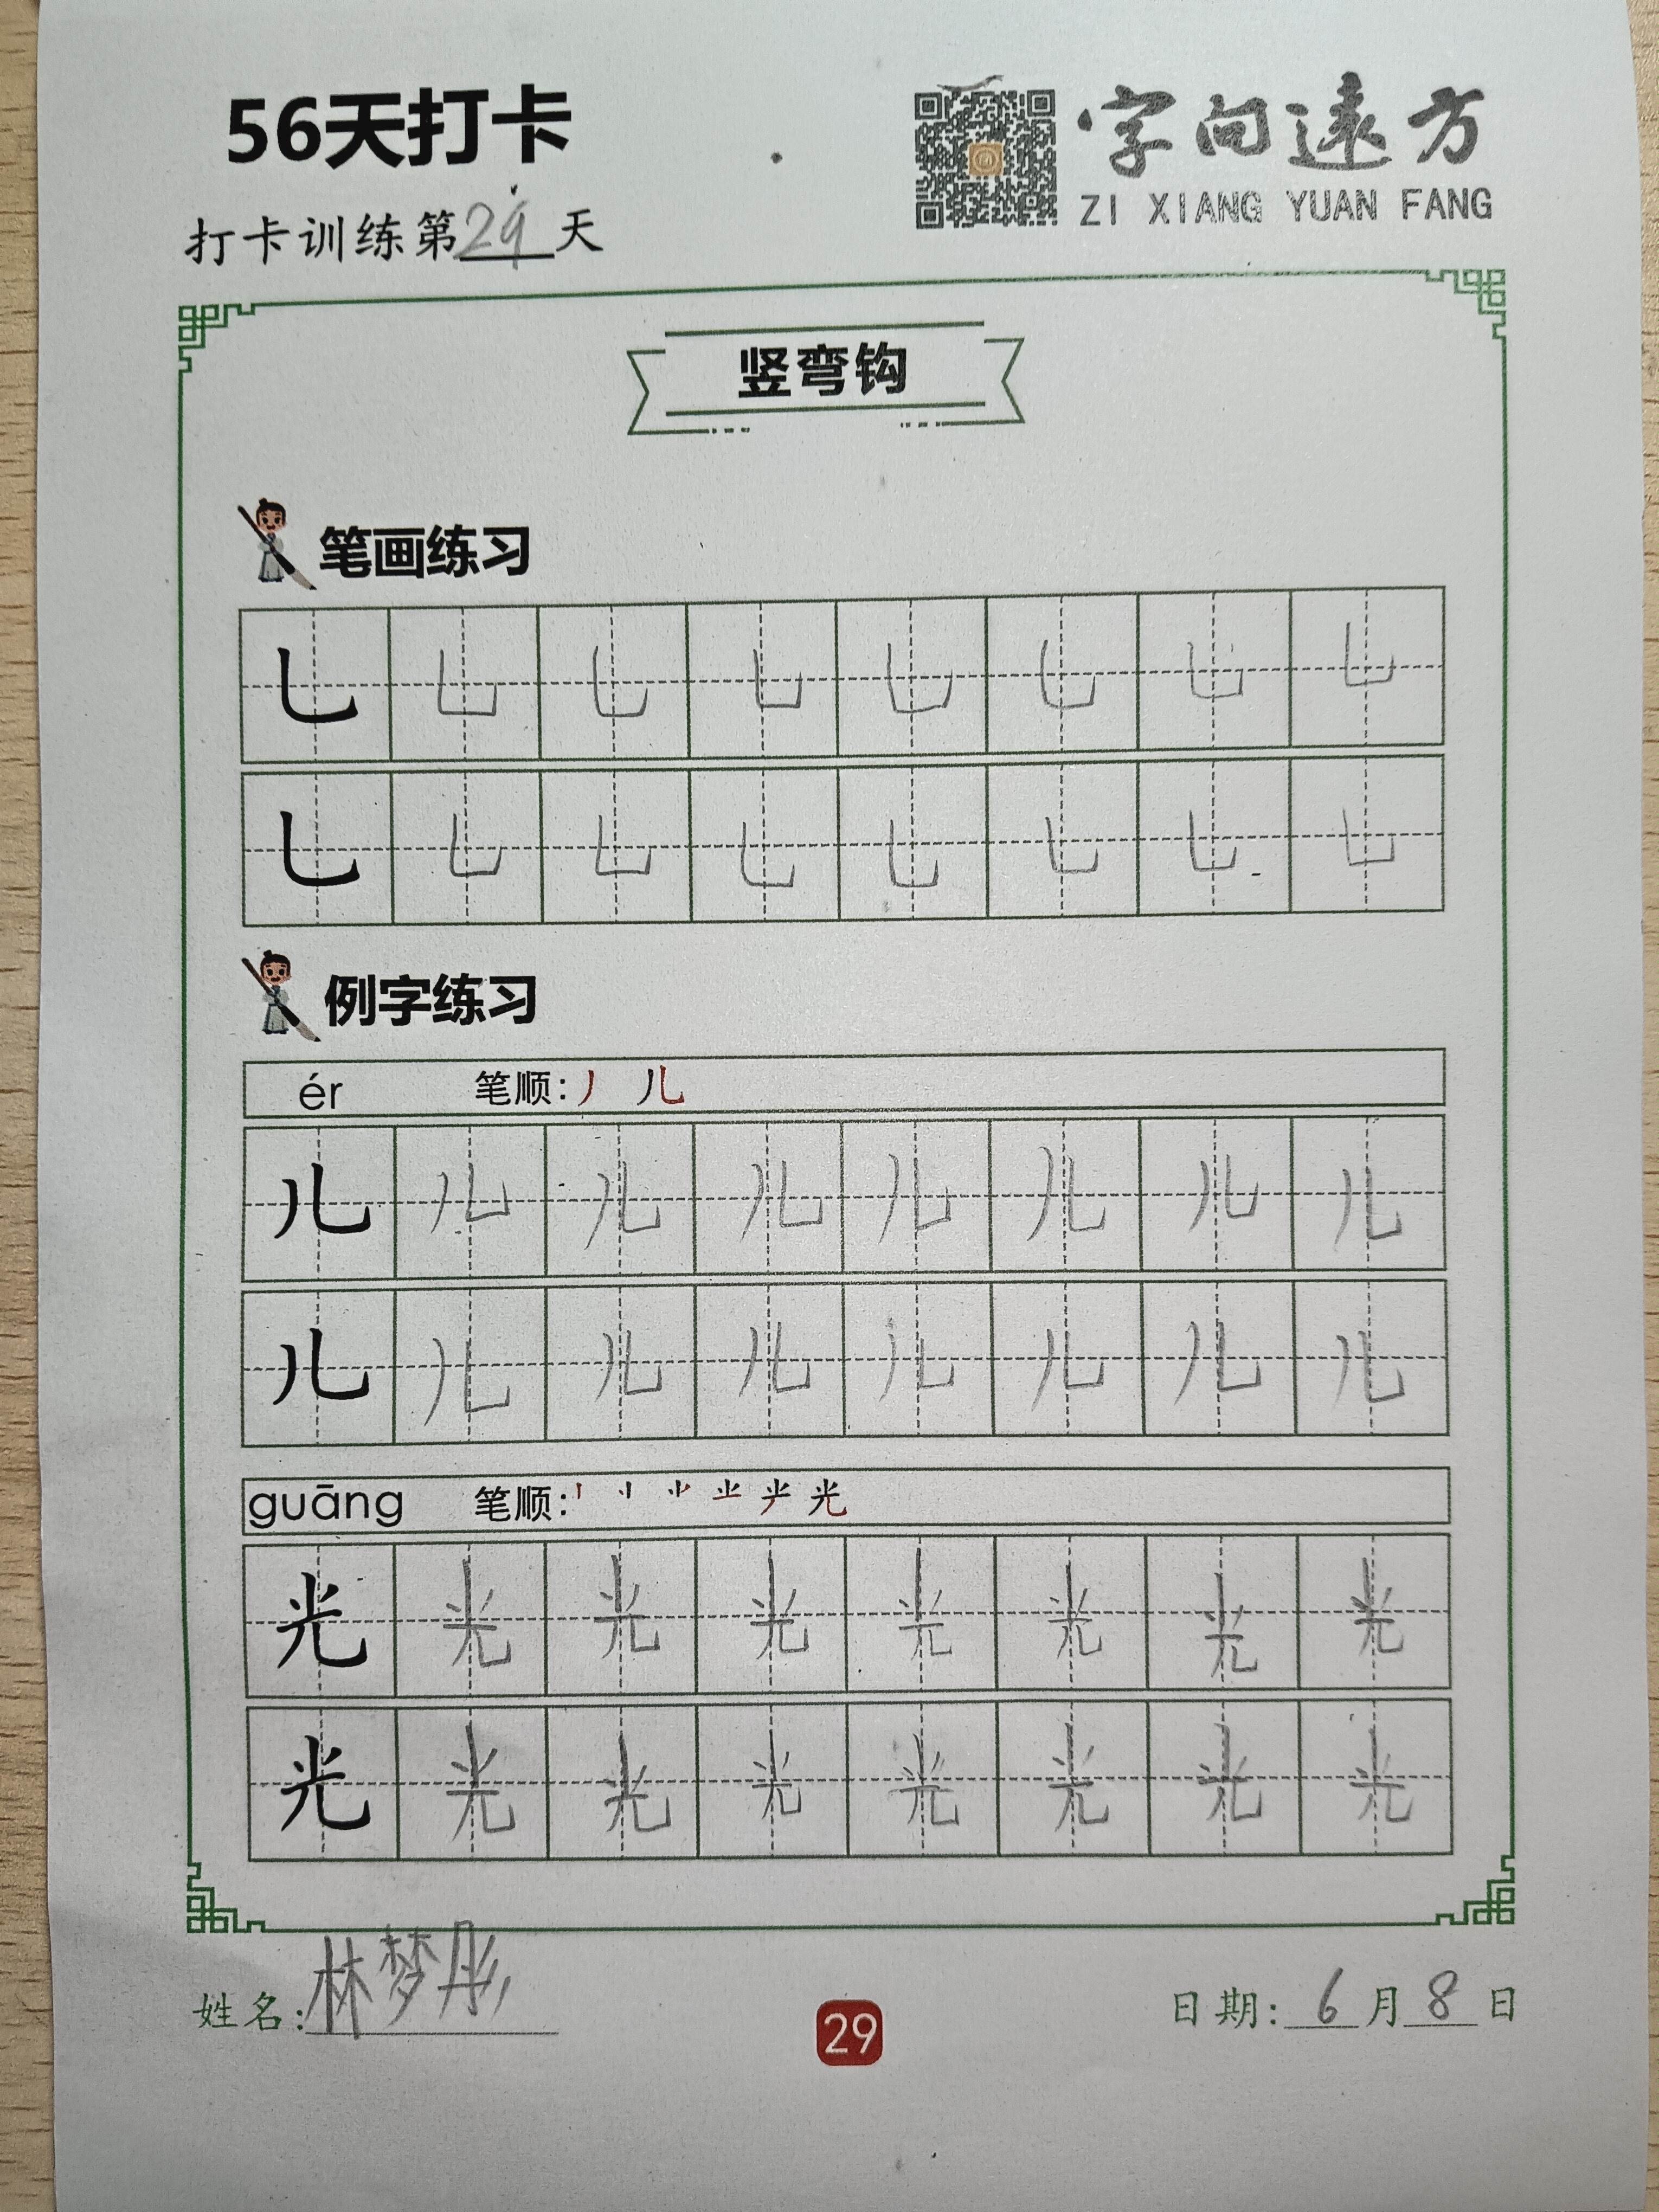 56天打卡
字向遠方
ZI XIANG YUAN FANG
打卡训练第29天
竖弯钩
笔画练习
乚 乚 乚 乚 乚 乚 乚 乚
乚 乚 乚 乚 乚 乚 乚 乚
例字练习
ér 笔顺: 丿 儿
儿 儿 儿 儿 儿 儿 儿 儿
儿 儿 儿 儿 儿 儿 儿 儿
guāng 笔顺: 光
光 光 光 光 光 光 光 光
光 光 光 光 光 光 光 光
姓名: 林梦彤
29
日期: 6月8日